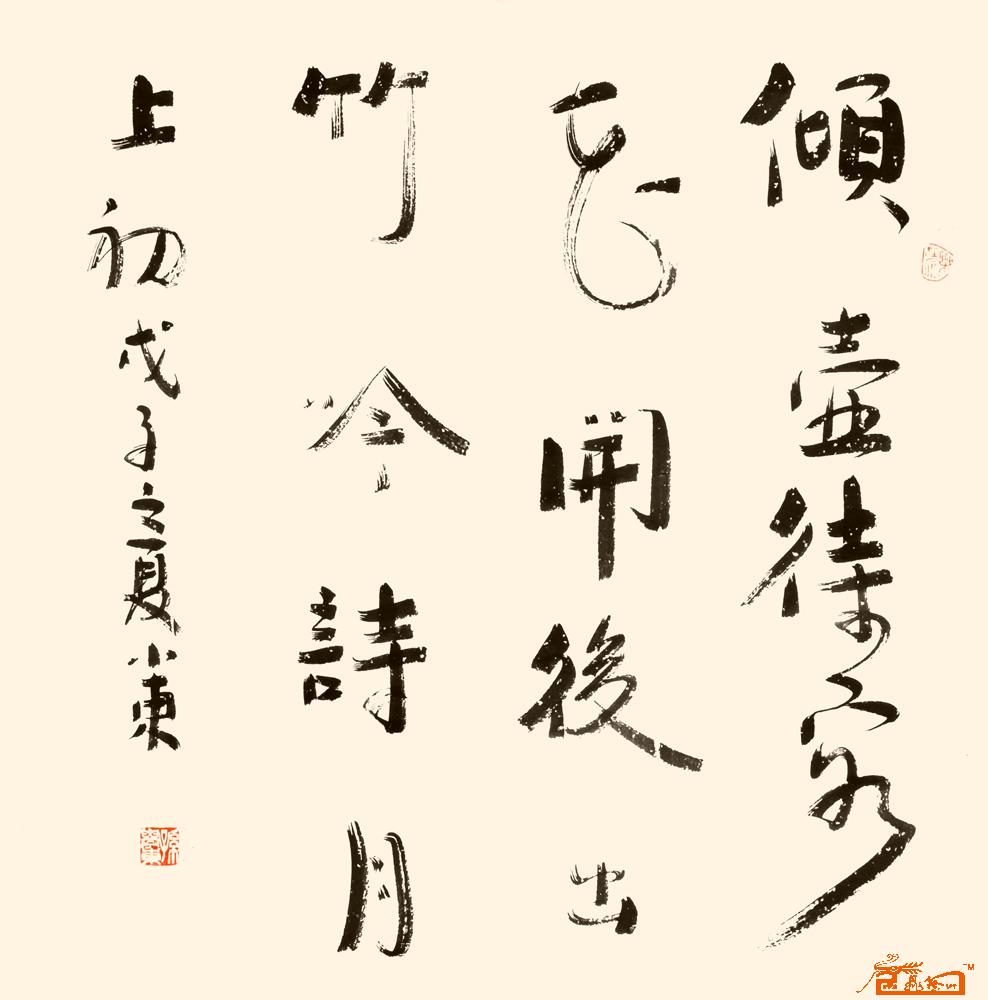 傾壺待客
花開後出
竹吟詩月
上初戊子之夏小東